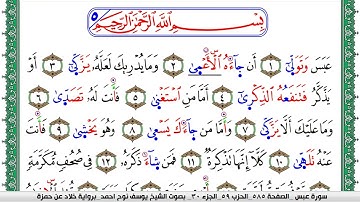 بِسْمِ اللَّهِ الرَّحْمَٰنِ الرَّحِيمِ
عَبَسَ وَتَوَلَّىٰ ١ أَن جَآءَهُ الْأَعْمَىٰ ٢ وَمَا يُدْرِيكَ لَعَلَّهُ يَزَّكَّىٰ ٣ أَوْ
يَذَّكَّرُ فَتَنفَعُهُ الذِّكْرَىٰ ٤ أَمَّا مَنِ اسْتَغْنَىٰ ٥ فَأَنتَ لَهُ تَصَدَّىٰ ٦
وَمَا عَلَيْكَ أَلَّا يَزَّكَّىٰ ٧ وَأَمَّا مَن جَآءَكَ يَسْعَىٰ ٨ وَهُوَ يَخْشَىٰ ٩ فَأَنتَ
عَنْهُ تَلَهَّىٰ ١٠ كَلَّا إِنَّهَا تَذْكِرَةٌ ١١ فَمَن شَآءَ ذَكَرَهُ ١٢ فِي صُحُفٍ مُّكَرَّمَةٍ
سورة عبس . الصفحة ٥٨٥ . الحزب ٥٩ . الجزء ٣٠ . بصوت الشيخ يوسف نوح احمد . برواية خلاد عن حمزة